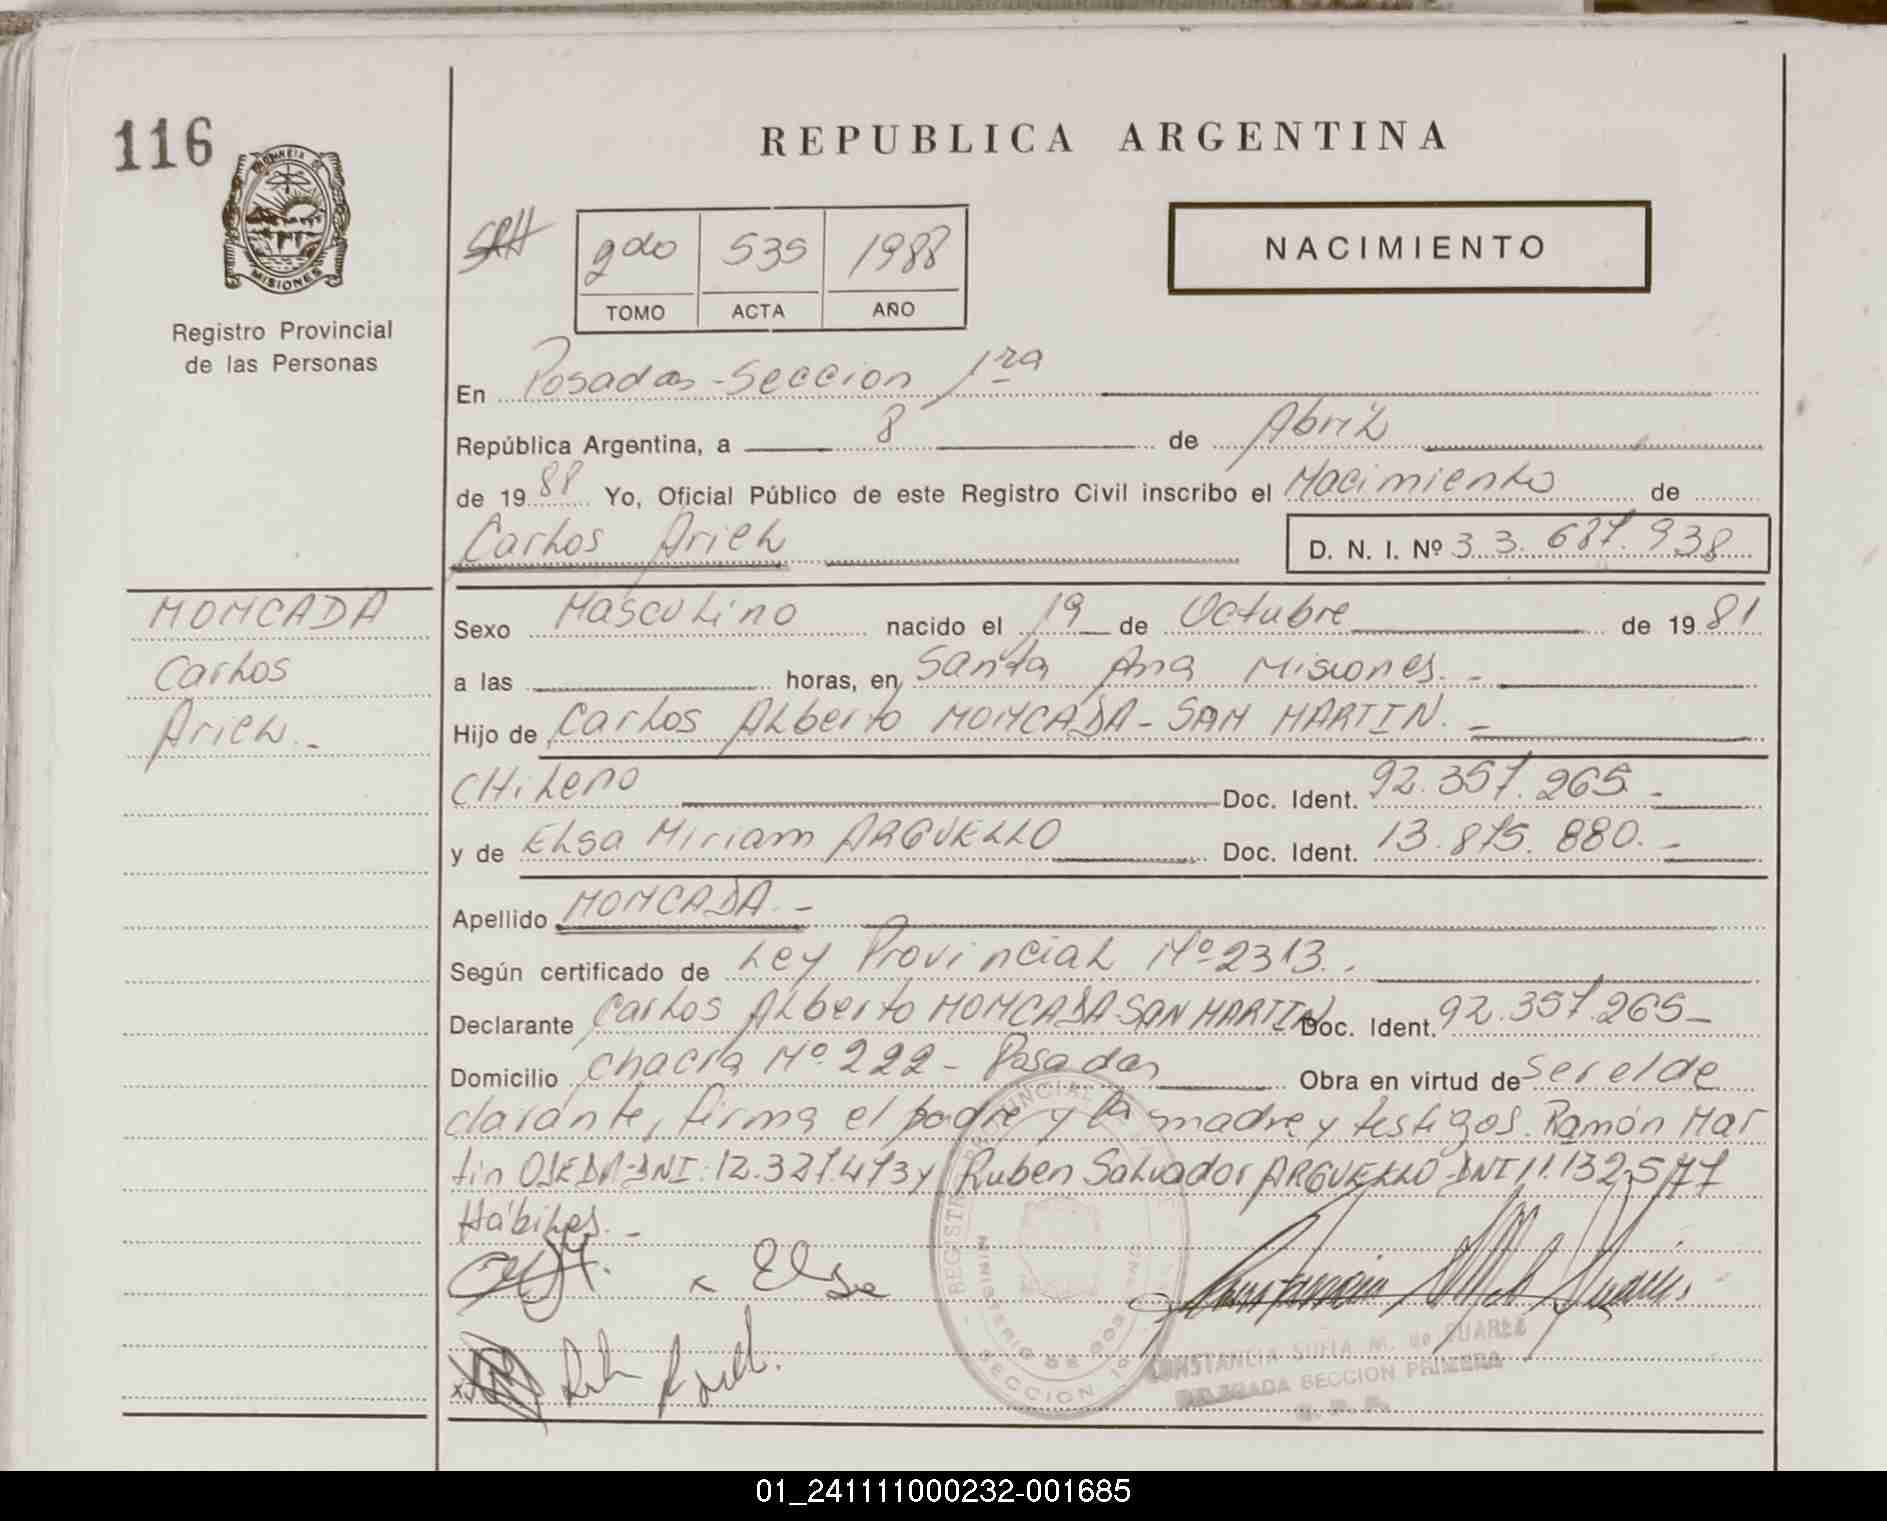 116
PROVINCIA DE
MISIONES
Registro Provincial
de las Personas
REPUBLICA ARGENTINA
2do 535 1988
TOMO ACTA AÑO
NACIMIENTO
En Posadas - Seccion 1ra
República Argentina, a 8 de Abril
de 1988 Yo, Oficial Público de este Registro Civil inscribo el Nacimiento de
Carlos Ariel
D. N. I. Nº 33.687.938
MONCADA
Carlos
Ariel.-
Sexo Masculino nacido el 19 de Octubre de 1981
a las horas, en Santa Ana Misiones.-
Hijo de Carlos Alberto MONCADA - SAN MARTIN.-
CHileno Doc. Ident. 92.357.265.-
y de Elsa Miriam ARGUELLO Doc. Ident. 13.875.880.-
Apellido MONCADA.-
Según certificado de Ley Provincial Nº 2313.
Declarante Carlos Alberto MONCADA SAN MARTIN Doc. Ident. 92.357.265-
Domicilio chacra Nº 222 - Posadas Obra en virtud de ser el de
clarante, firma el padre y la madre y testigos. Ramón Mar
tin OJEDA-DNI: 12.327.473 y Ruben Salvador ARGUELLO-DNI 11.132.577
Hábiles.-
x Elsa
REGISTRO PROVINCIAL
MINISTERIO DE GOB
SECCION 1a
CONSTANCIA SOFIA M. de SUAREZ
DELEGADA SECCION PRIMERA
01_241111000232-001685